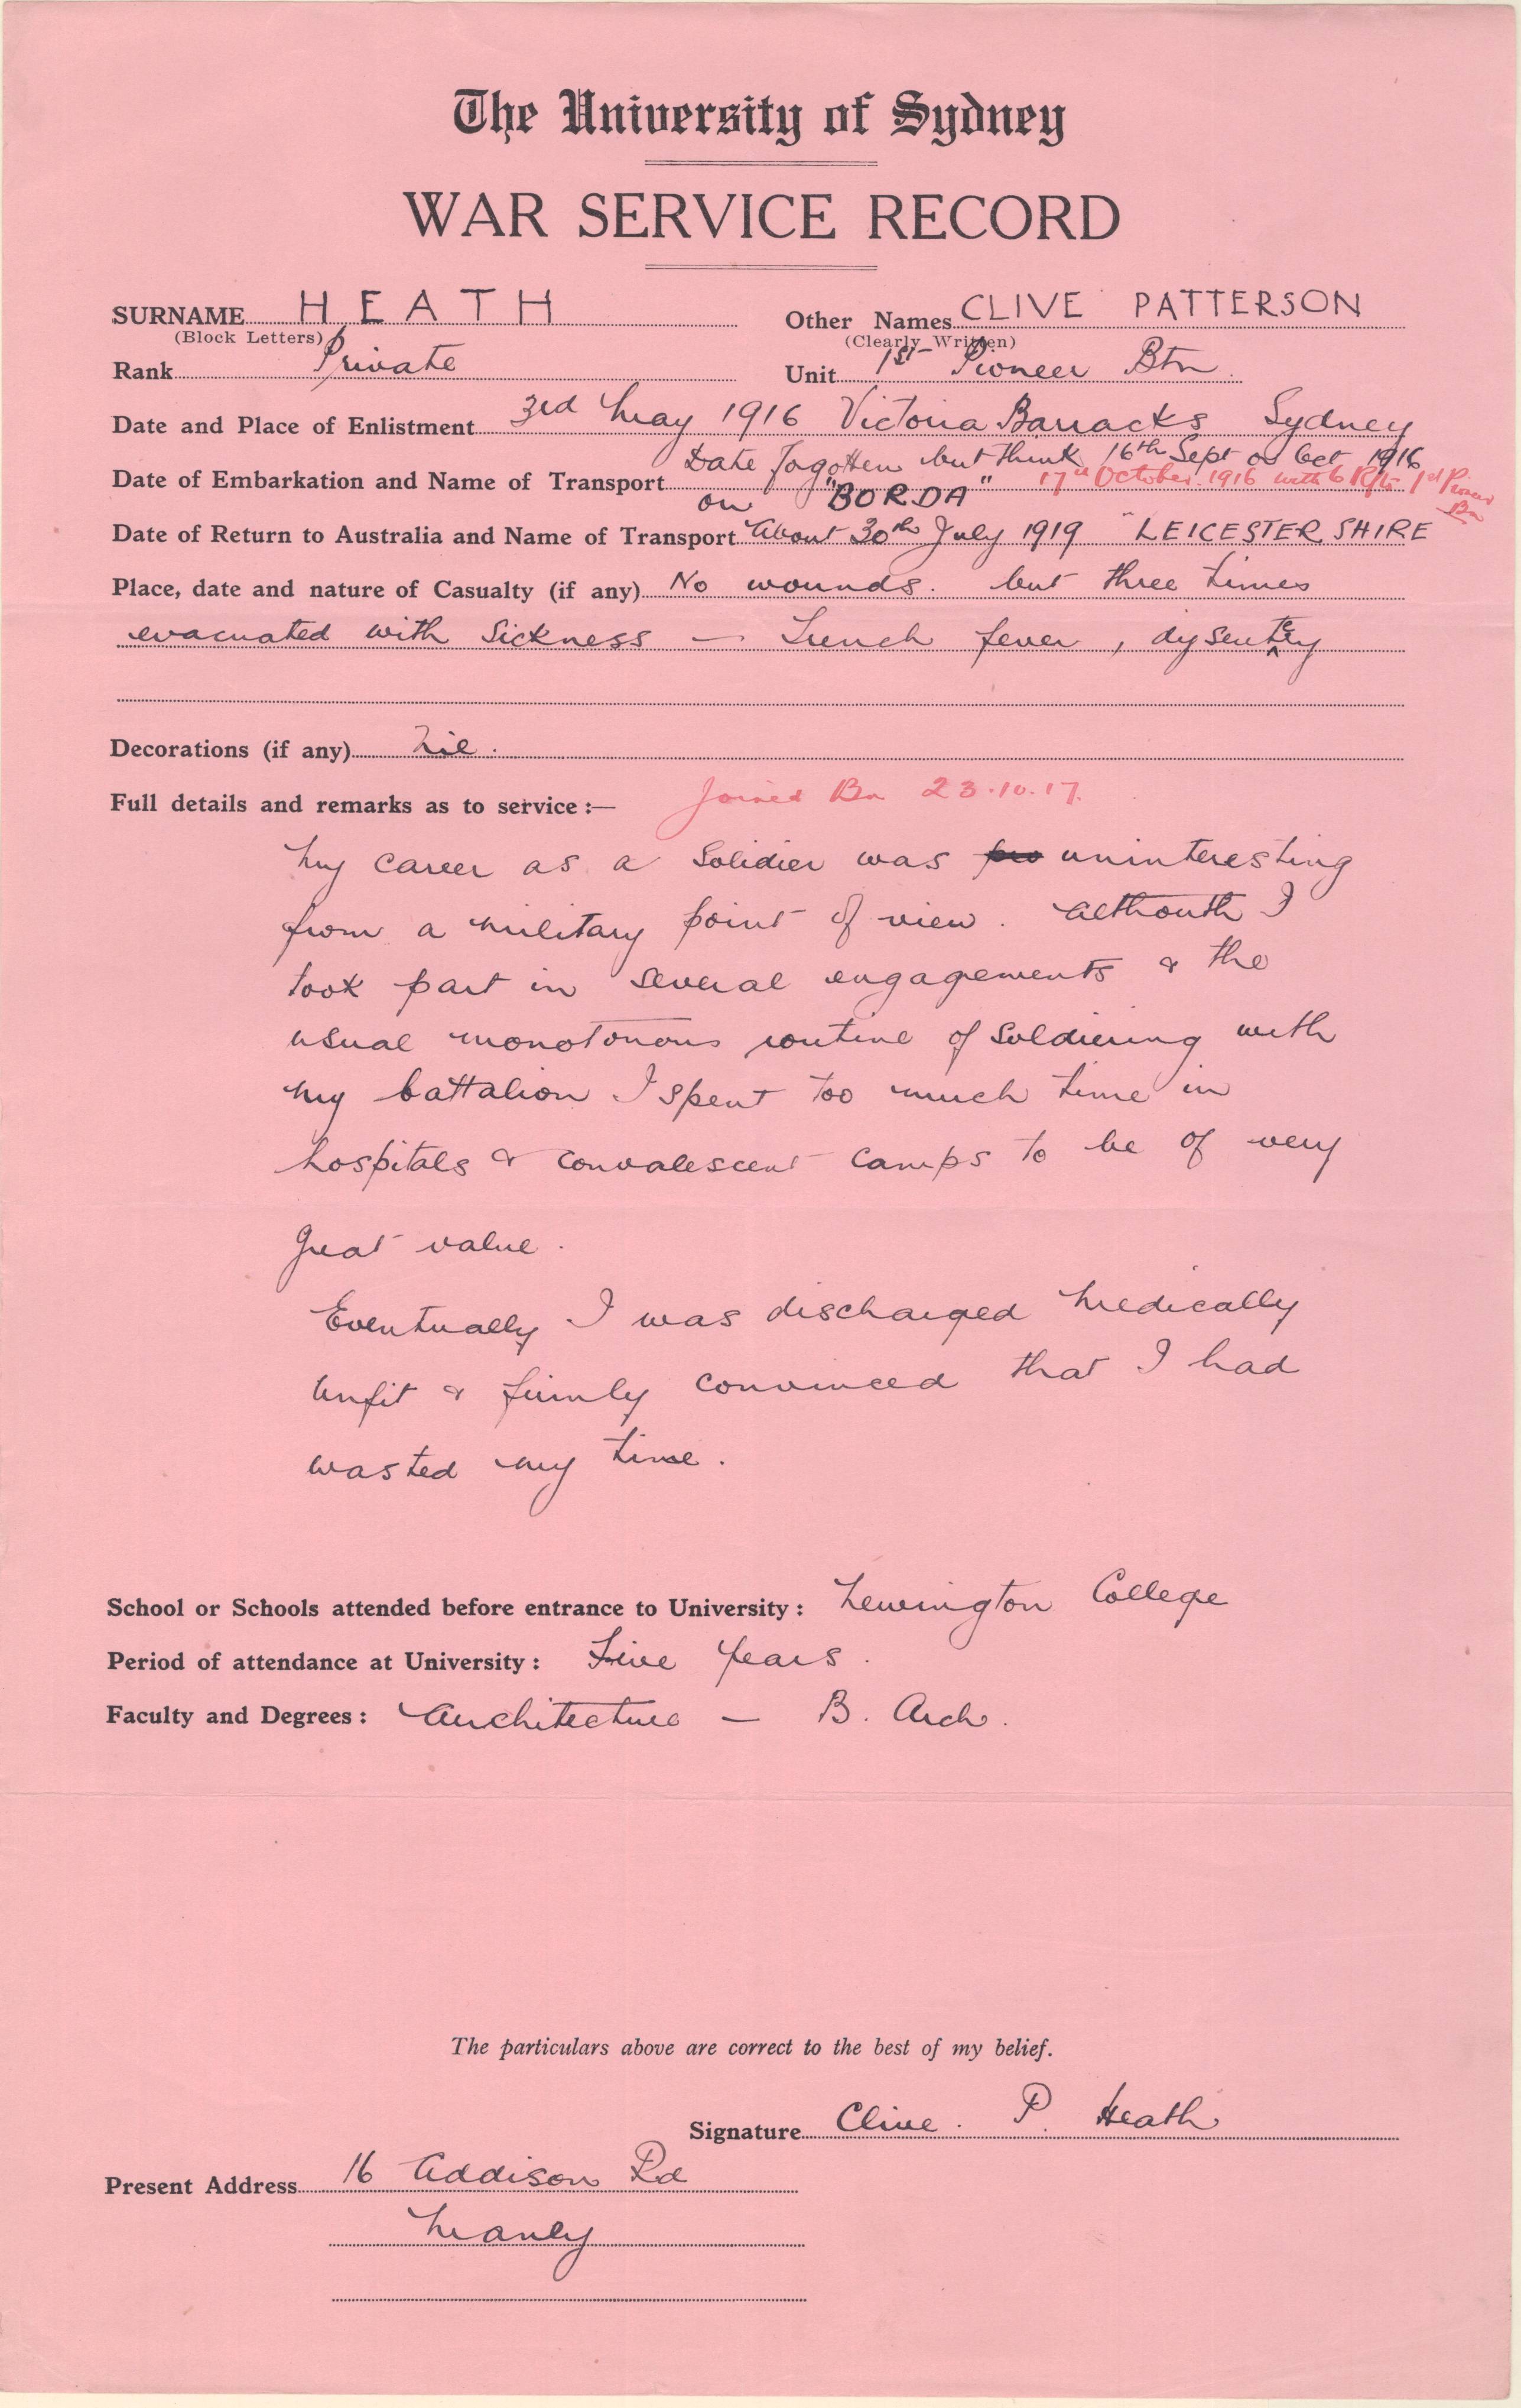 The University of Sydney
WAR SERVICE RECORD
SURNAME HEATH Other Names CLIVE PATTERSON
(Block Letters) (Clearly Written)
Rank Private Unit 1st Pioneer Btn
Date and Place of Enlistment 3rd May 1916 Victoria Barracks Sydney
Date forgotten but think 16th Sept or Oct 1916
Date of Embarkation and Name of Transport on "BORDA" 17th October 1916 with 6 R/fts 1st Pioneer Bn
Date of Return to Australia and Name of Transport About 30th July 1919 "LEICESTERSHIRE
Place, date and nature of Casualty (if any) No wounds. but three times
evacuated with sickness — Trench fever, dysentery
Decorations (if any) Nil.
Full details and remarks as to service :— Joined Bn 23.10.17.
My career as a Solidier was pro uninteresting
from a military point of view. Althouth I
took part in several engagements & the
usual monotonous routine of soldiering with
my battalion I spent too much time in
hospitals & convalescent camps to be of very
great value.
Eventually I was discharged medically
unfit & firmly convinced that I had
wasted my time.
School or Schools attended before entrance to University : Newington College
Period of attendance at University : Five Years.
Faculty and Degrees : Architecture — B. Arch.
The particulars above are correct to the best of my belief.
Signature Clive. P. Heath
Present Address 16 Addison Rd
Manly